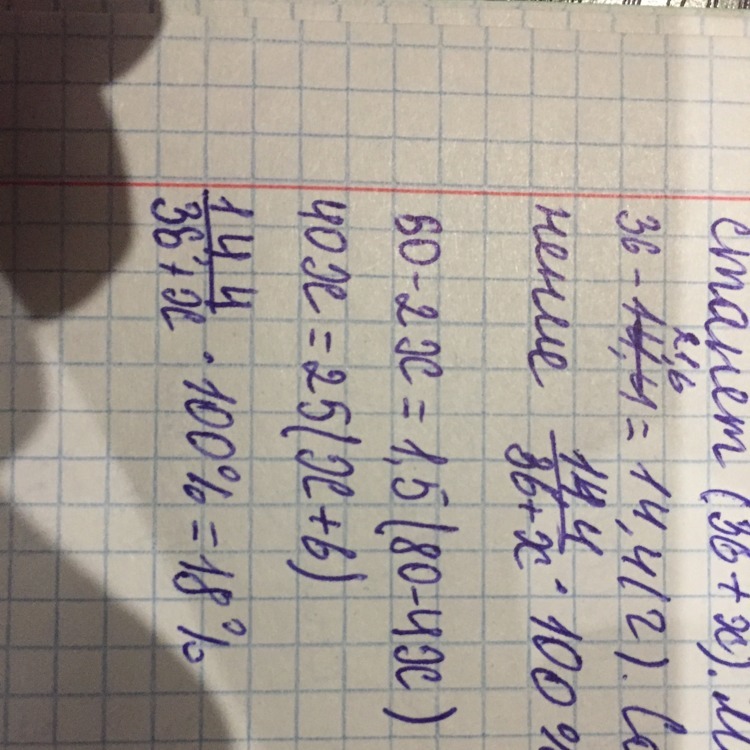 станет (36 + x). М
36 - 21,6 = 14,4 (г).
нение 14,4/36+x · 100%
60 - 2x = 1,5(80 - 4x)
40x = 25(x + 6)
14,4/36+x · 100% = 18%